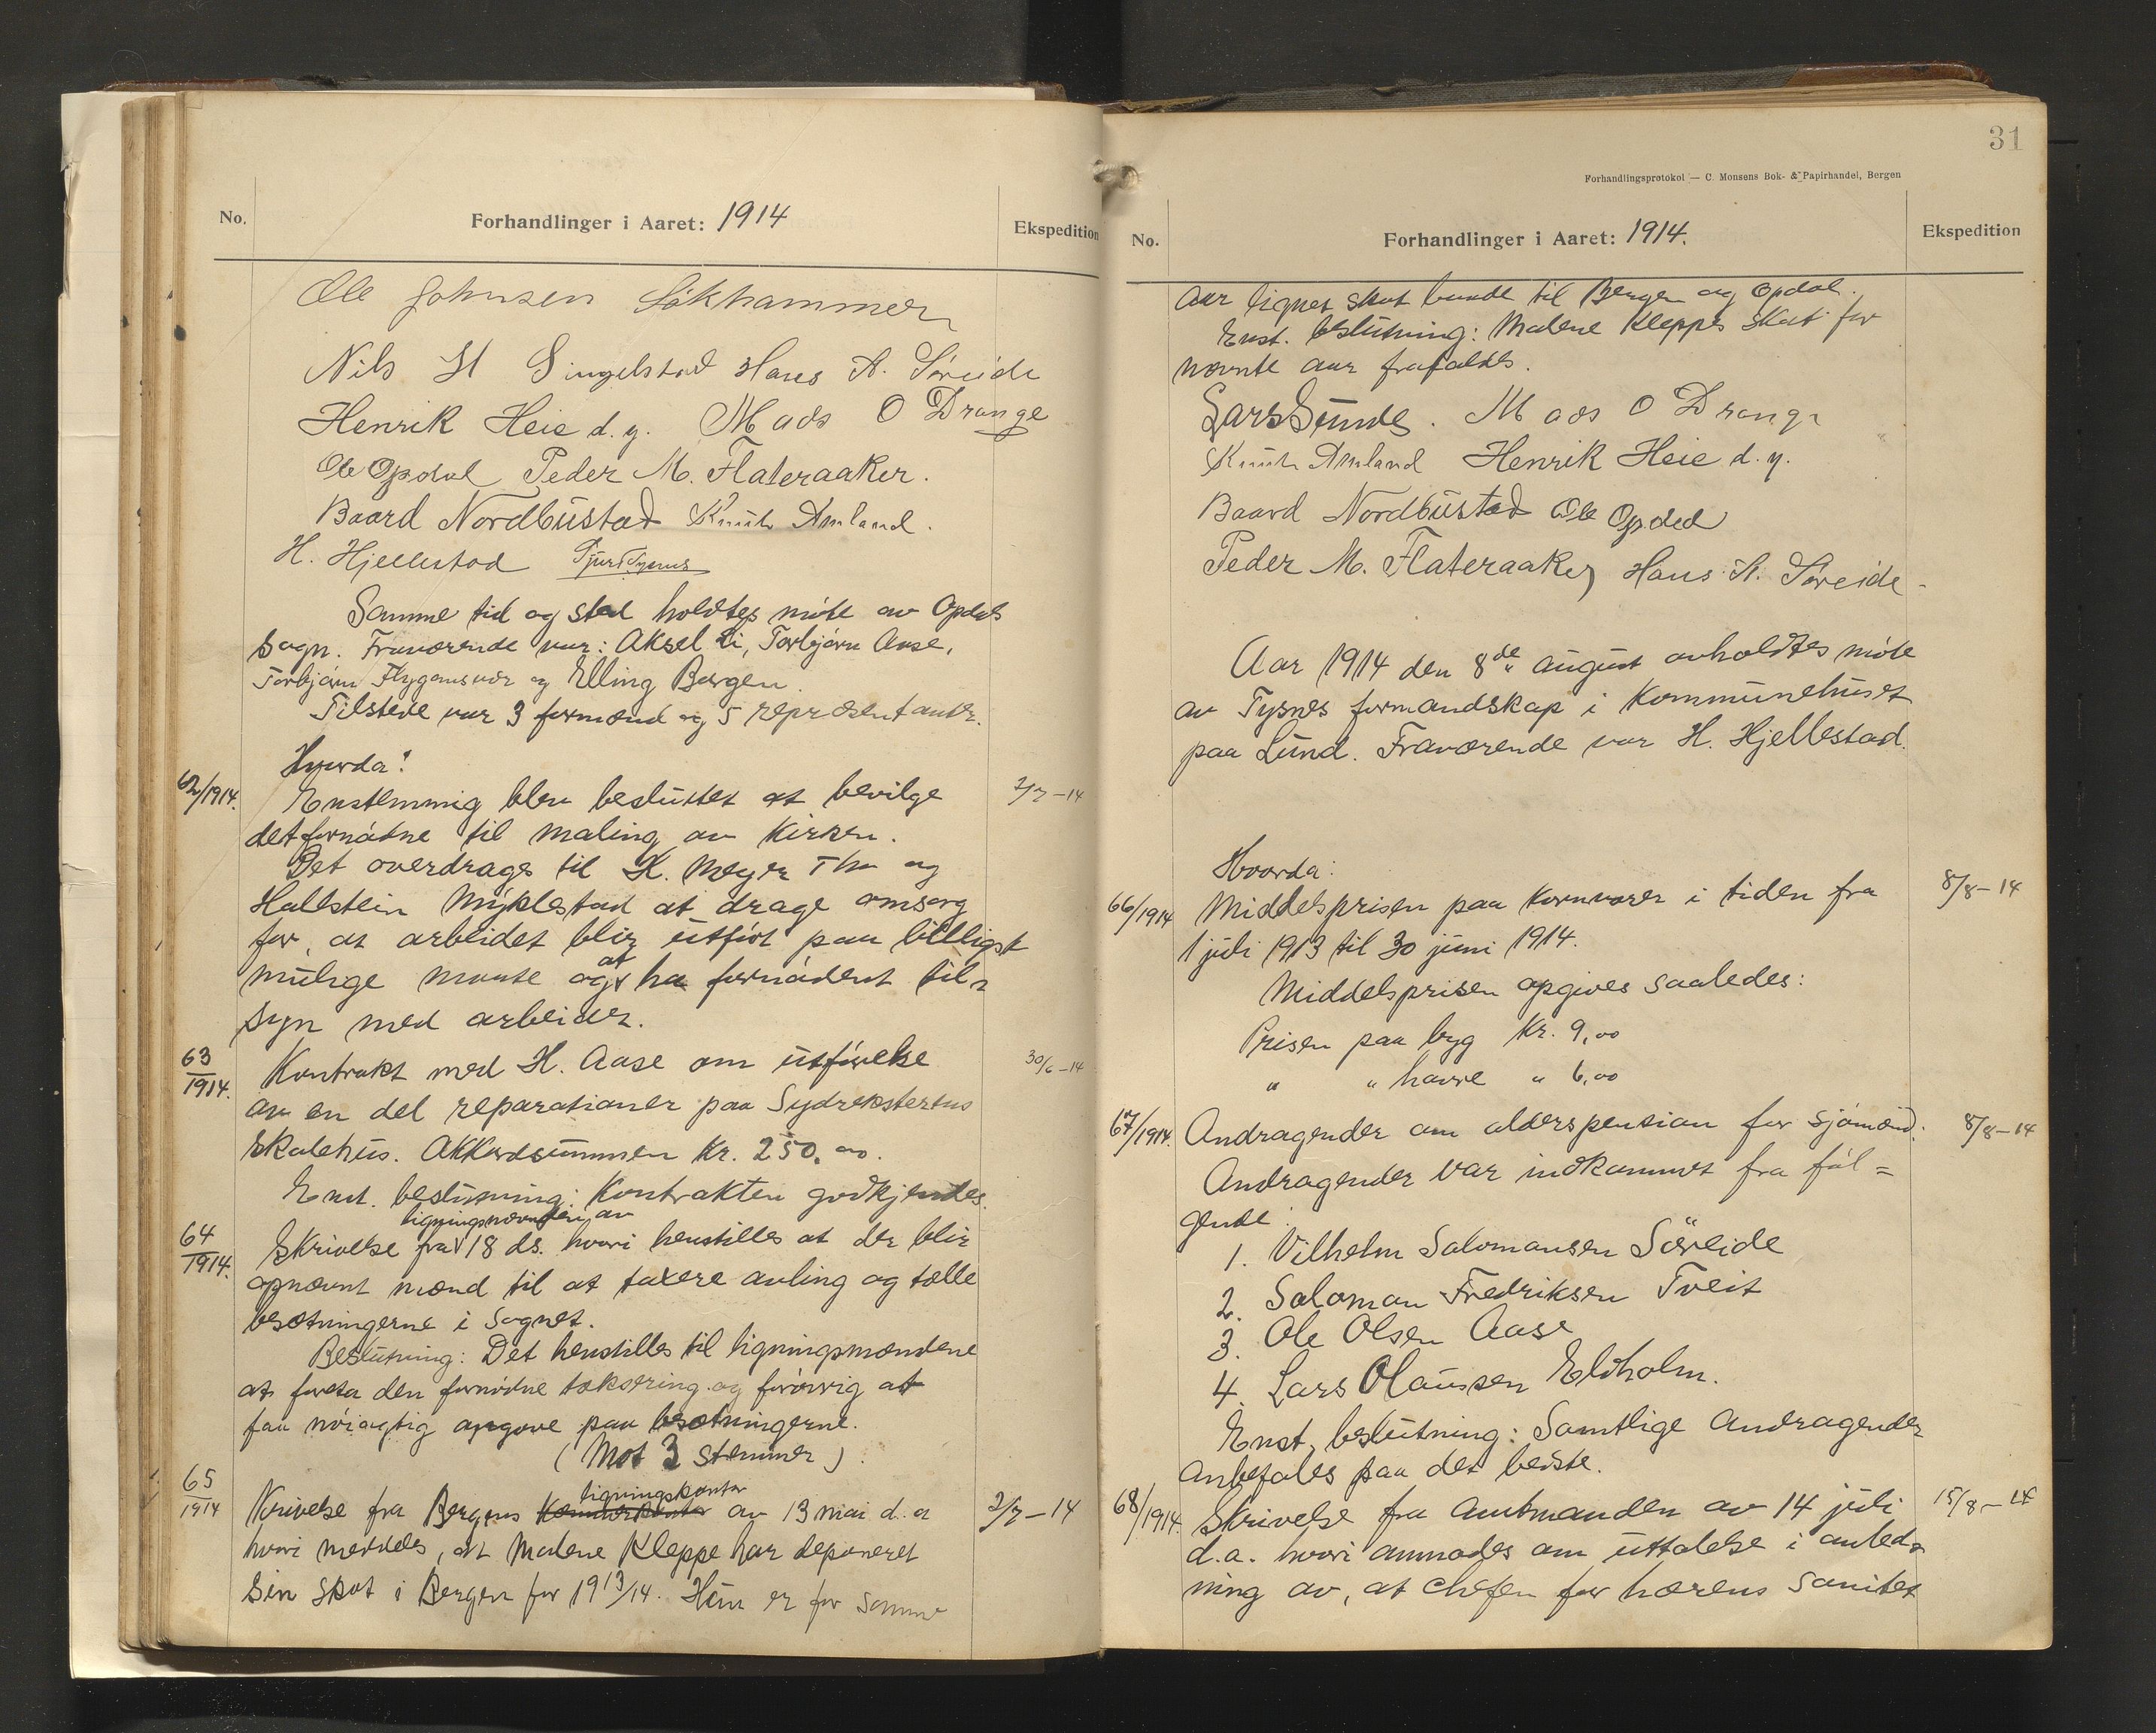 No.
Forhandlinger i Aaret: 1914
Ekspedition
Ole Johnsen Løkhammer
Nils H Singelstad Hans A. Søreide
Henrik Heie d. y. Mads O Drange
Ole Opdal Peder M. Flateraaker.
Baard Nordbustad Knut Amland.
H. Hjellestad
Samme tid og sted holdtes møte av Opdals
sogn. Fraværende var: Aksel Li, Torbjørn Aase,
Torbjørn Flygansvær og Elling Bergen.
Tilstede var 3 formænd og 5 repræsentanter.
Hvorda:
62/1914.
Enstemmig blev besluttet at bevilge
2/7-14
det fornødne til maling av kirken.
Det overdrages til H. Meyer Thu og
Hallstein Myklestad at drage omsorg
for, at arbeidet blir utført paa billigst
mulige maate og at ha fornødent til=
syn med arbeidet.
63/1914.
Kontrakt med H. Aase om utførelse
30/6-14
av en del reparationer paa Sydrekstertus
skolehus. Akkordsummen Kr. 250.00.
Enst. beslutning: Kontrakten godkjendes.
64/1914.
Skrivelse fra ligningsnævnden av 18 ds. hvori henstilles at der blir
opnævnt mænd til at taxere avling og tælle
besætningerne i sognet.
Beslutning: Det henstilles til ligningsmændene
at foreta den fornødne taksering og forøvrig at
faa nøiagtig opgave paa besætningerne.
(Mot 3 stemmer).
65/1914
Skrivelse fra Bergens Kæmnerkontor ligningskontor av 13 mai d.a
2/7-14
hvori meddeles, at Malene Kleppe har deponeret
sin skat i Bergen for 1913/14. Hun er for samme
31
Forhandlingsprotokol — C. Monsens Bok- & Papirhandel, Bergen
No.
Forhandlinger i Aaret: 1914.
Ekspedition
aar lignet skat baade til Bergen og Opdal.
Enst. beslutning: Malene Kleppes skat for
nævnte aar frafaldes.
Lars Sunde. Mads O Drange
Knut Amland Henrik Heie d. y.
Baard Nordbustad Ole Opdal
Peder M. Flateraaker Hans A. Søreide
Aar 1914 den 8de august avholdtes møte
av Tysnes formandskap i Kommunehuset
paa Lund. Fraværende var H. Hjellestad.
Hvorda:
66/1914
Middelsprisen paa kornvarer i tiden fra
8/8-14
1 juli 1913 til 30 juni 1914.
Middelsprisen opgives saaledes:
Prisen paa byg Kr. 9,00
" " havre " 6,00
67/1914.
Andragender om alderspension for sjømænd.
8/8-14
Andragender var indkommet fra føl=
gende:
1. Vilhelm Salomonsen Söreide
2. Salomon Fredriksen Tveit
3. Ole Olsen Aase
4. Lars Olaussen Eldholm.
Enst. beslutning: Samtlige andragender
anbefales paa det beste.
68/1914.
Skrivelse fra amtmanden av 14 juli
15/8-14
d.a. hvori anmodes om uttalelse i anled=
ning av, at chefen for hærens sanitet